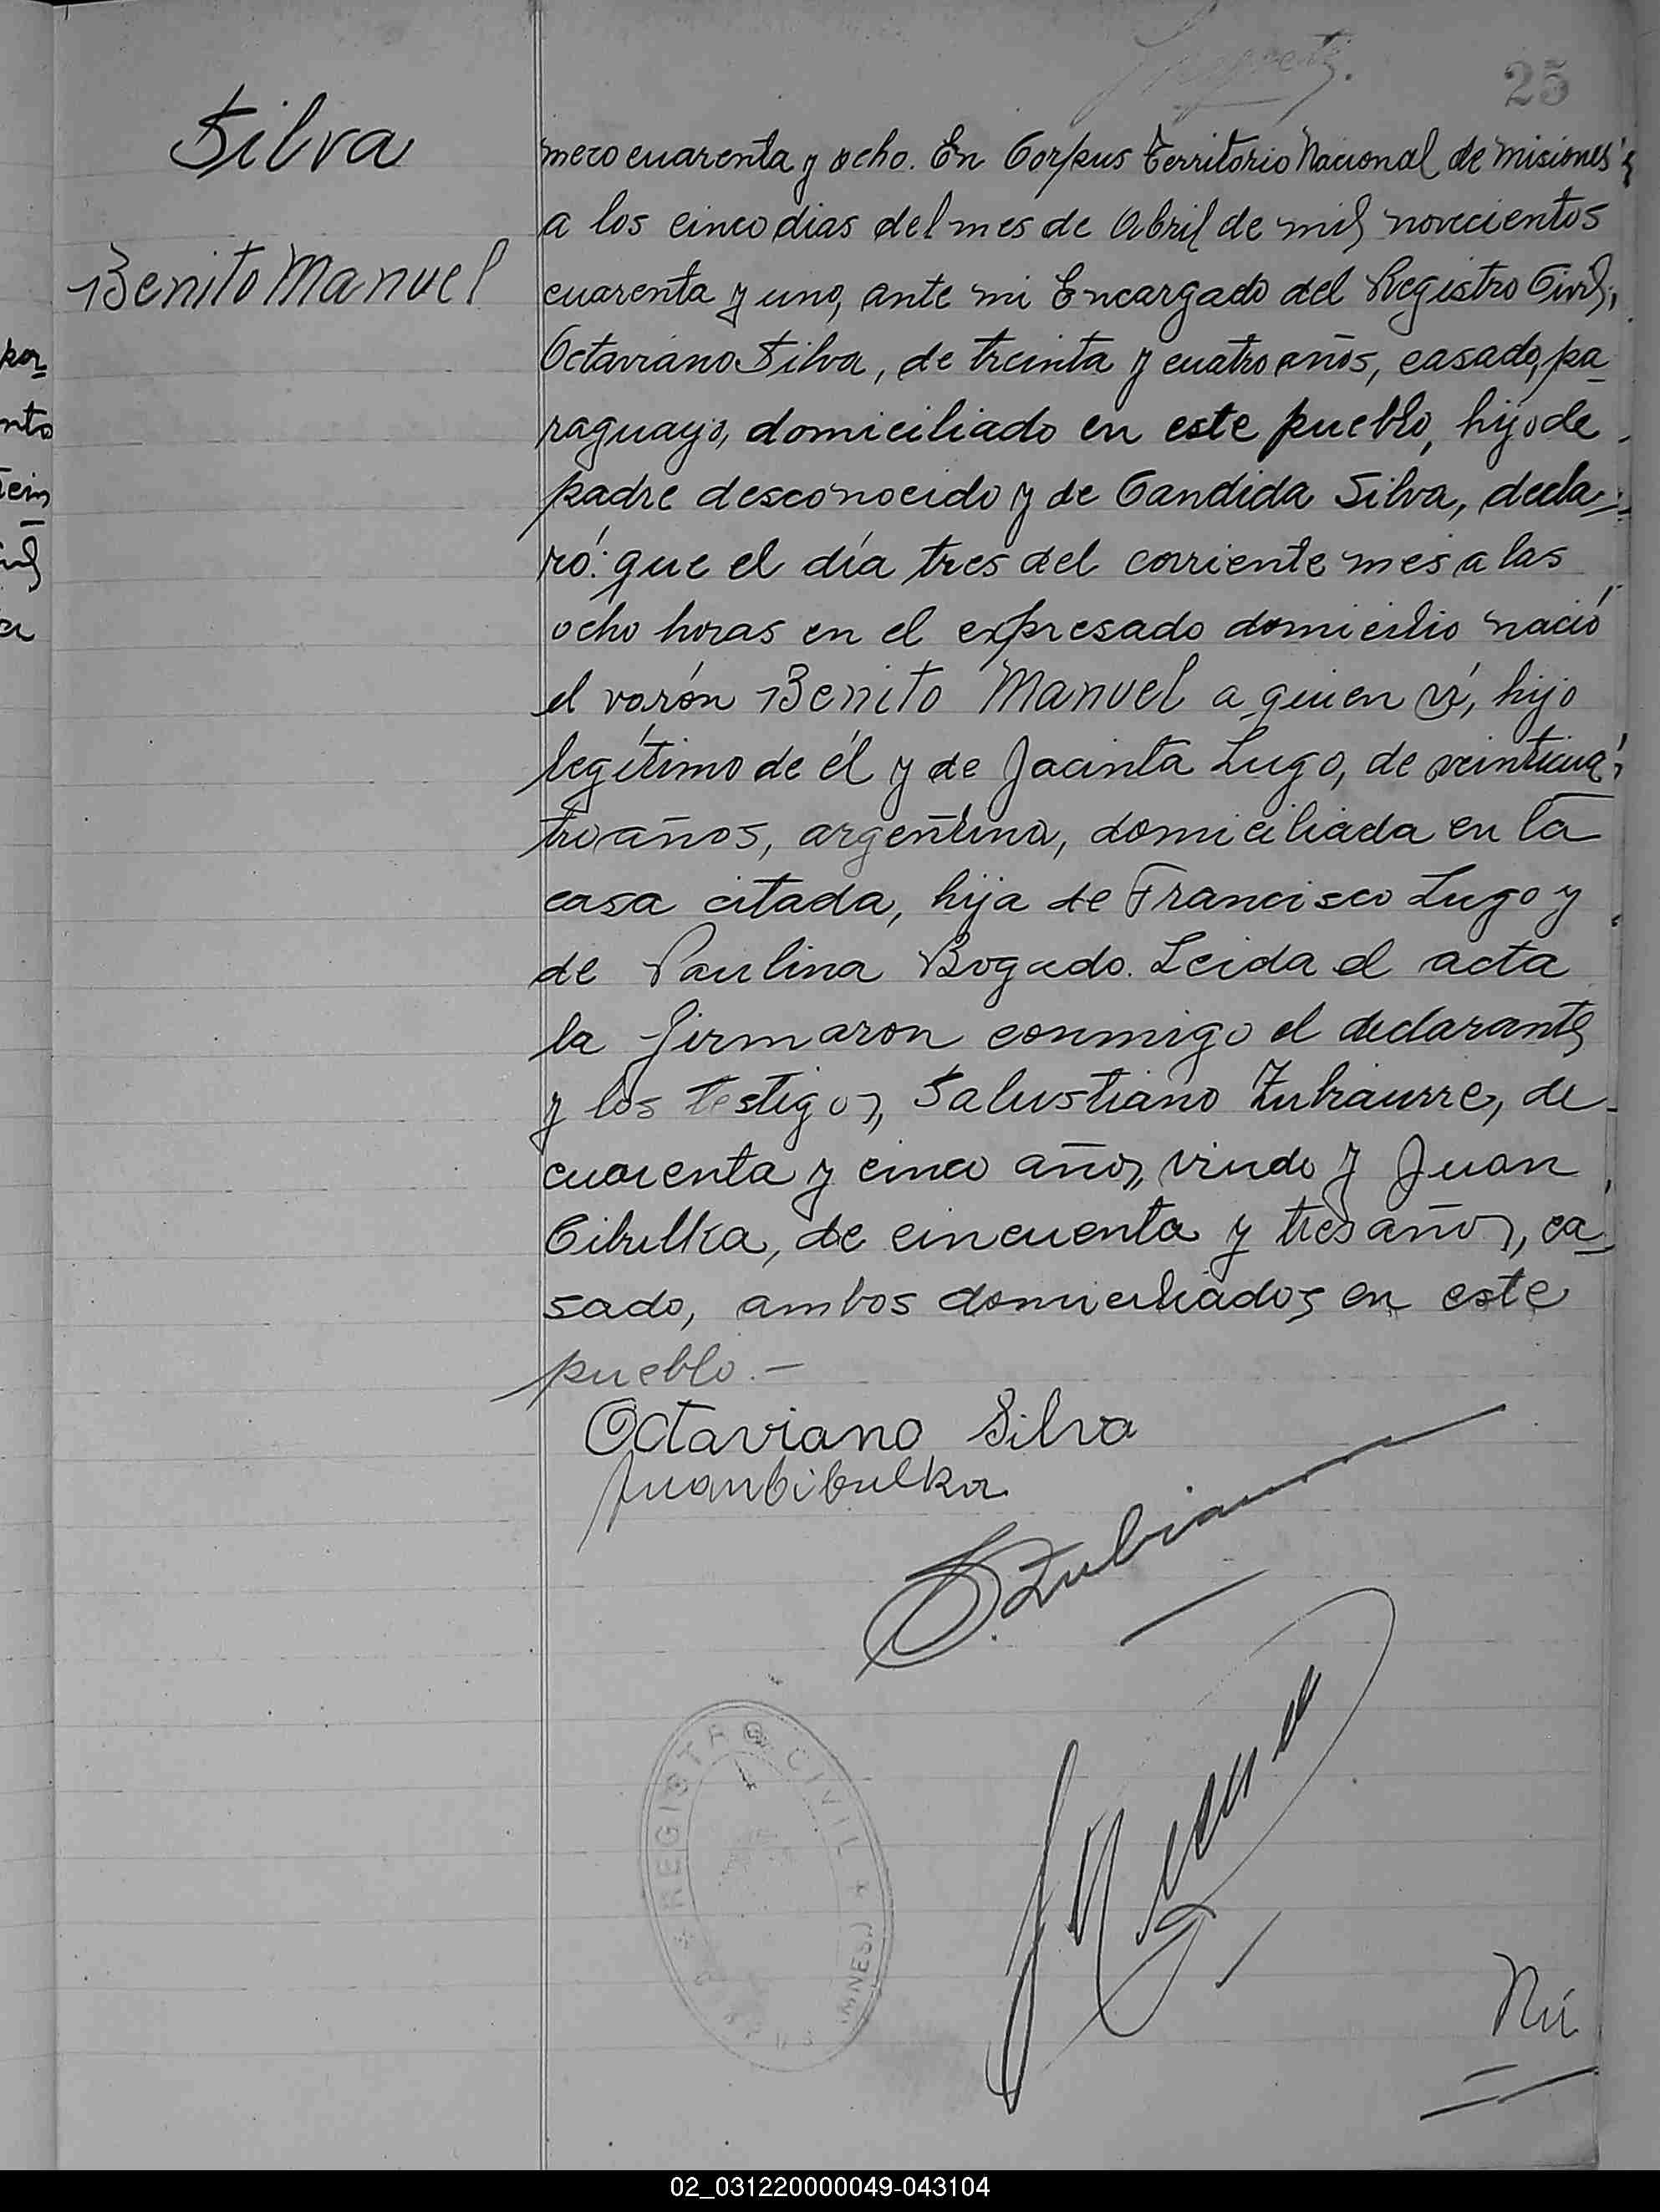 25
Silva
Benito Manuel
mero cuarenta y ocho. En Corpus Territorio Nacional de Misiones
a los cinco dias del mes de Abril de mil novecientos
cuarenta y uno, ante mi Encargado del Registro Civil,
Octaviano Silva, de treinta y cuatro años, casado, pa
raguayo, domiciliado en este pueblo, hijo de
padre desconocido y de Candida Silva, decla
ró: que el día tres del corriente mes a las
ocho horas en el expresado domicilio nació
el varón Benito Manuel a quien ví, hijo
legítimo de él y de Jacinta Lugo, de veinticua
tro años, argentina, domiciliada en la
casa citada, hija de Francisco Lugo y
de Paulina Bogado. Leida el acta
la firmaron conmigo el declarante
y los testigos, Salustiano Zubiaurre, de
cuarenta y cinco años, viudo y Juan
Cibulka, de cincuenta y tres años, ca-
sado, ambos domiciliados en este
pueblo.—
Octaviano Silva
Juan Cibulka
REGISTRO CIVIL
(MNES.)
Nú
por
nto
02_031220000049-043104